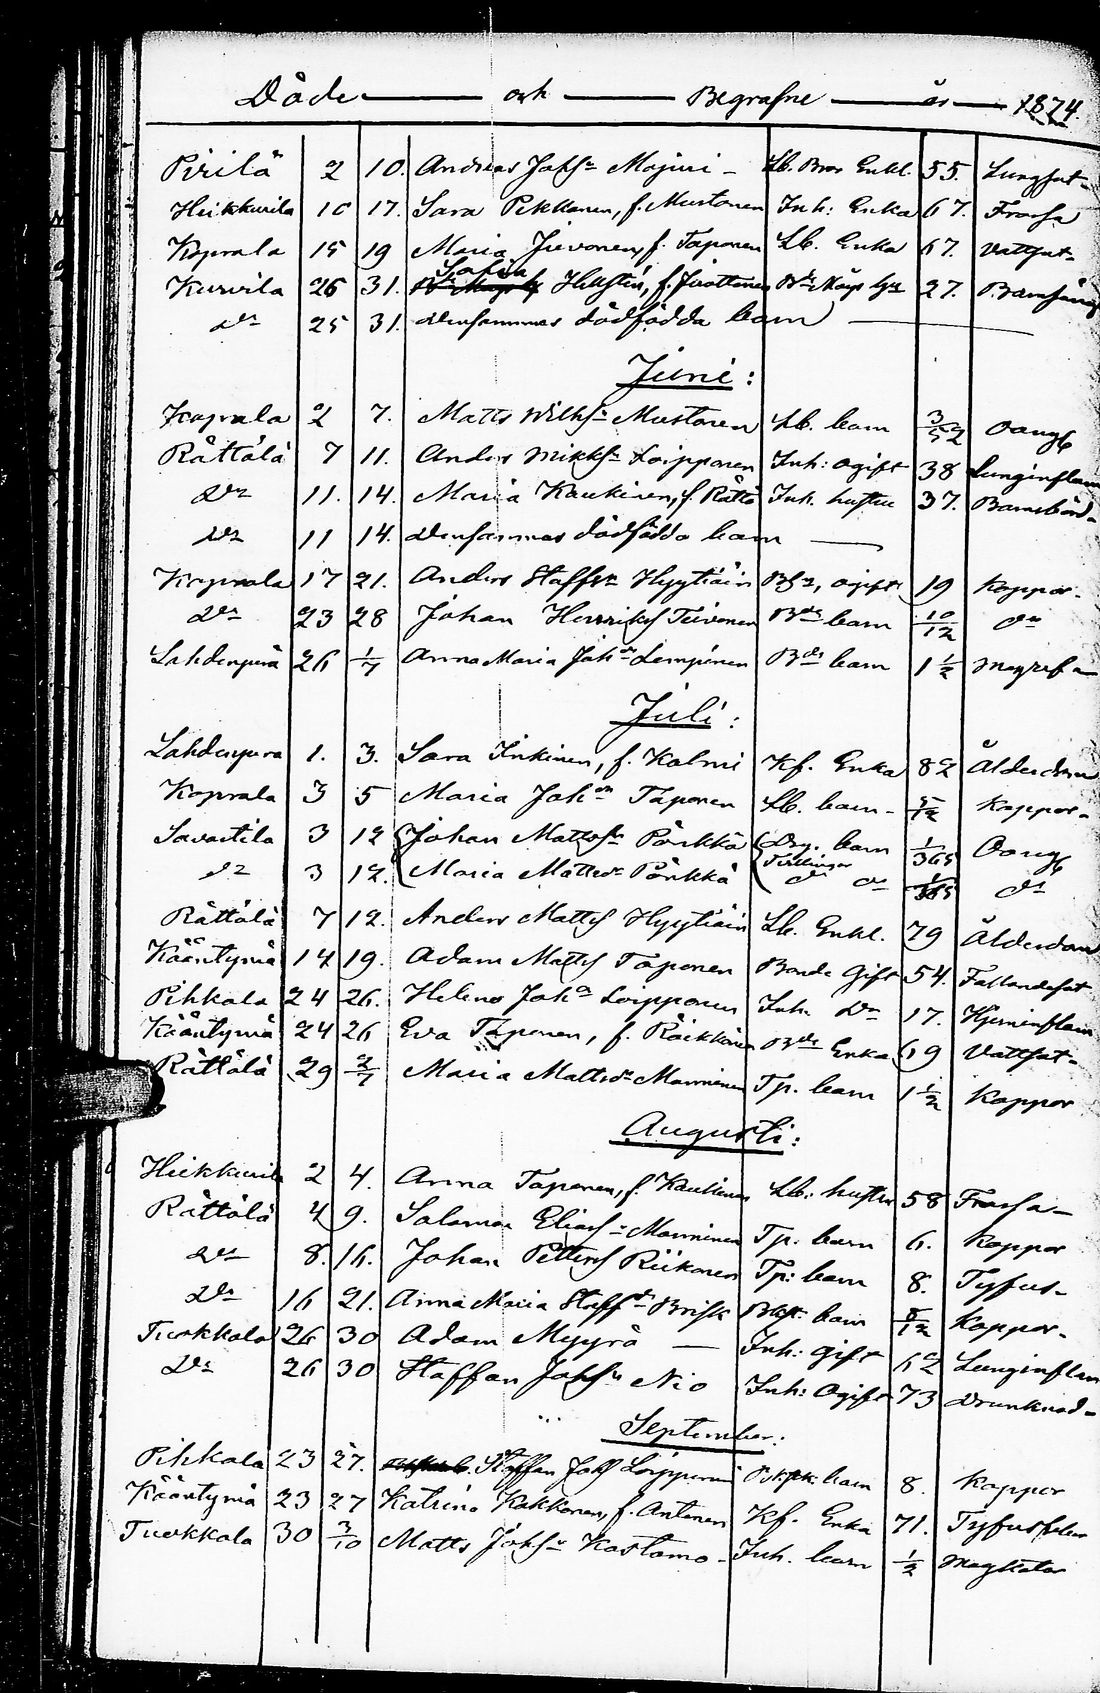 Döde och Begrafne år 1874.
Pirilä 2 10. Andreas Johsn Majuri Lb. Bror Enkl. 55. Lungsot
Heikkurila 10 17. Sara Pekkonen, f. Mustonen Inh: Enka 67. Frossa
Koprala 15 19 Maria Teivonen, f. Taponen Lb. Enka 67. Vattsot
Kurvila 26 31. Sofia Hellstén, f. Juottonen 27. Barnsäng
dn 25 31. densammas dödfödda barn
Juni:
Koprala 2 7. Matts Wilhsn Mustonen Lb. barn 3/52 Oangf
Rättälä 7 11. Anders Mikksn Loipponen Inh: ogift 38 Lunginflam
Dn 11. 14. Maria Kaukinen, f. Rättö Inh. hustru 37. Barnsbörd
Dn 11 14. densammas dödfödda barn
Koprala 17 21. Anders Staffsn Hyytiäin ogift 19 Koppor
Dn 23 28 Johan Henriks Teivonen Bds barn 10/12 dn
Lahdenperä 26 1/7 Anna Maria Johdr Lempinen Bds barn 1 1/2 Magref
Juli:
Lahdenpera 1. 3. Sara Inkinen, f. Kalmi Kf. Enka 82 Ålderdom
Koprala 3 5 Maria Johdr Taponen Lb. barn 5/12 Koppor
Savastila 3 12 Johan Mattssn Pörkkä Drg. barn 1/365 Oangf
dn 3 12. Maria Mattsdr Pörkkä Tvillingar dn dn 1/365 dn
Rättälä 7 12. Anders Matts Hyytiäin Lb. Enkl. 79 Ålderdom
Kääntymä 14 19. Adam Matts Taponen Bonde Gift 54. Fallandesot
Pihkala 24 26. Helena Johdr Loipponen Inh. Dn 17. Hjerninflam
Kääntymä 24 26 Eva Taponen, f. Räikkönen Bds Enka 69 Vattsot
Rättälä 29 2/7 Maria Mattsdr Manninen Tp. barn 1 1/2 Koppor
Augusti:
Heikkurila 2 4. Anna Taponen, f. Kaukinen Lb: hustru 58 Frossa
Rättälä 4 9. Salomon Eliassn Manninen Tp. barn 6. Koppor
Dn 8. 16. Johan Petters Riikonen Tp: barn 8. Tyfus
Dn 16 21. Anna Maria Staffdr Brisk barn 8/12 Koppor
Tuokkola 26 30 Adam Myyrä Inh: gift 62 Lunginflam
Dn 26 30 Staffan Johsn Nio Inh: Ogift 73 Drunknad
September:
Pihkala 23 27. Staffan Johs Loipponen barn 8. Koppor
Kääntymä 23 27 Katrina Kokkonen, f. Antonen Kf. Enka 71. Tyfusfeber
Tuokkola 30 3/10 Matts Johsn Kostamo Inh. barn 1/2 Magkatar